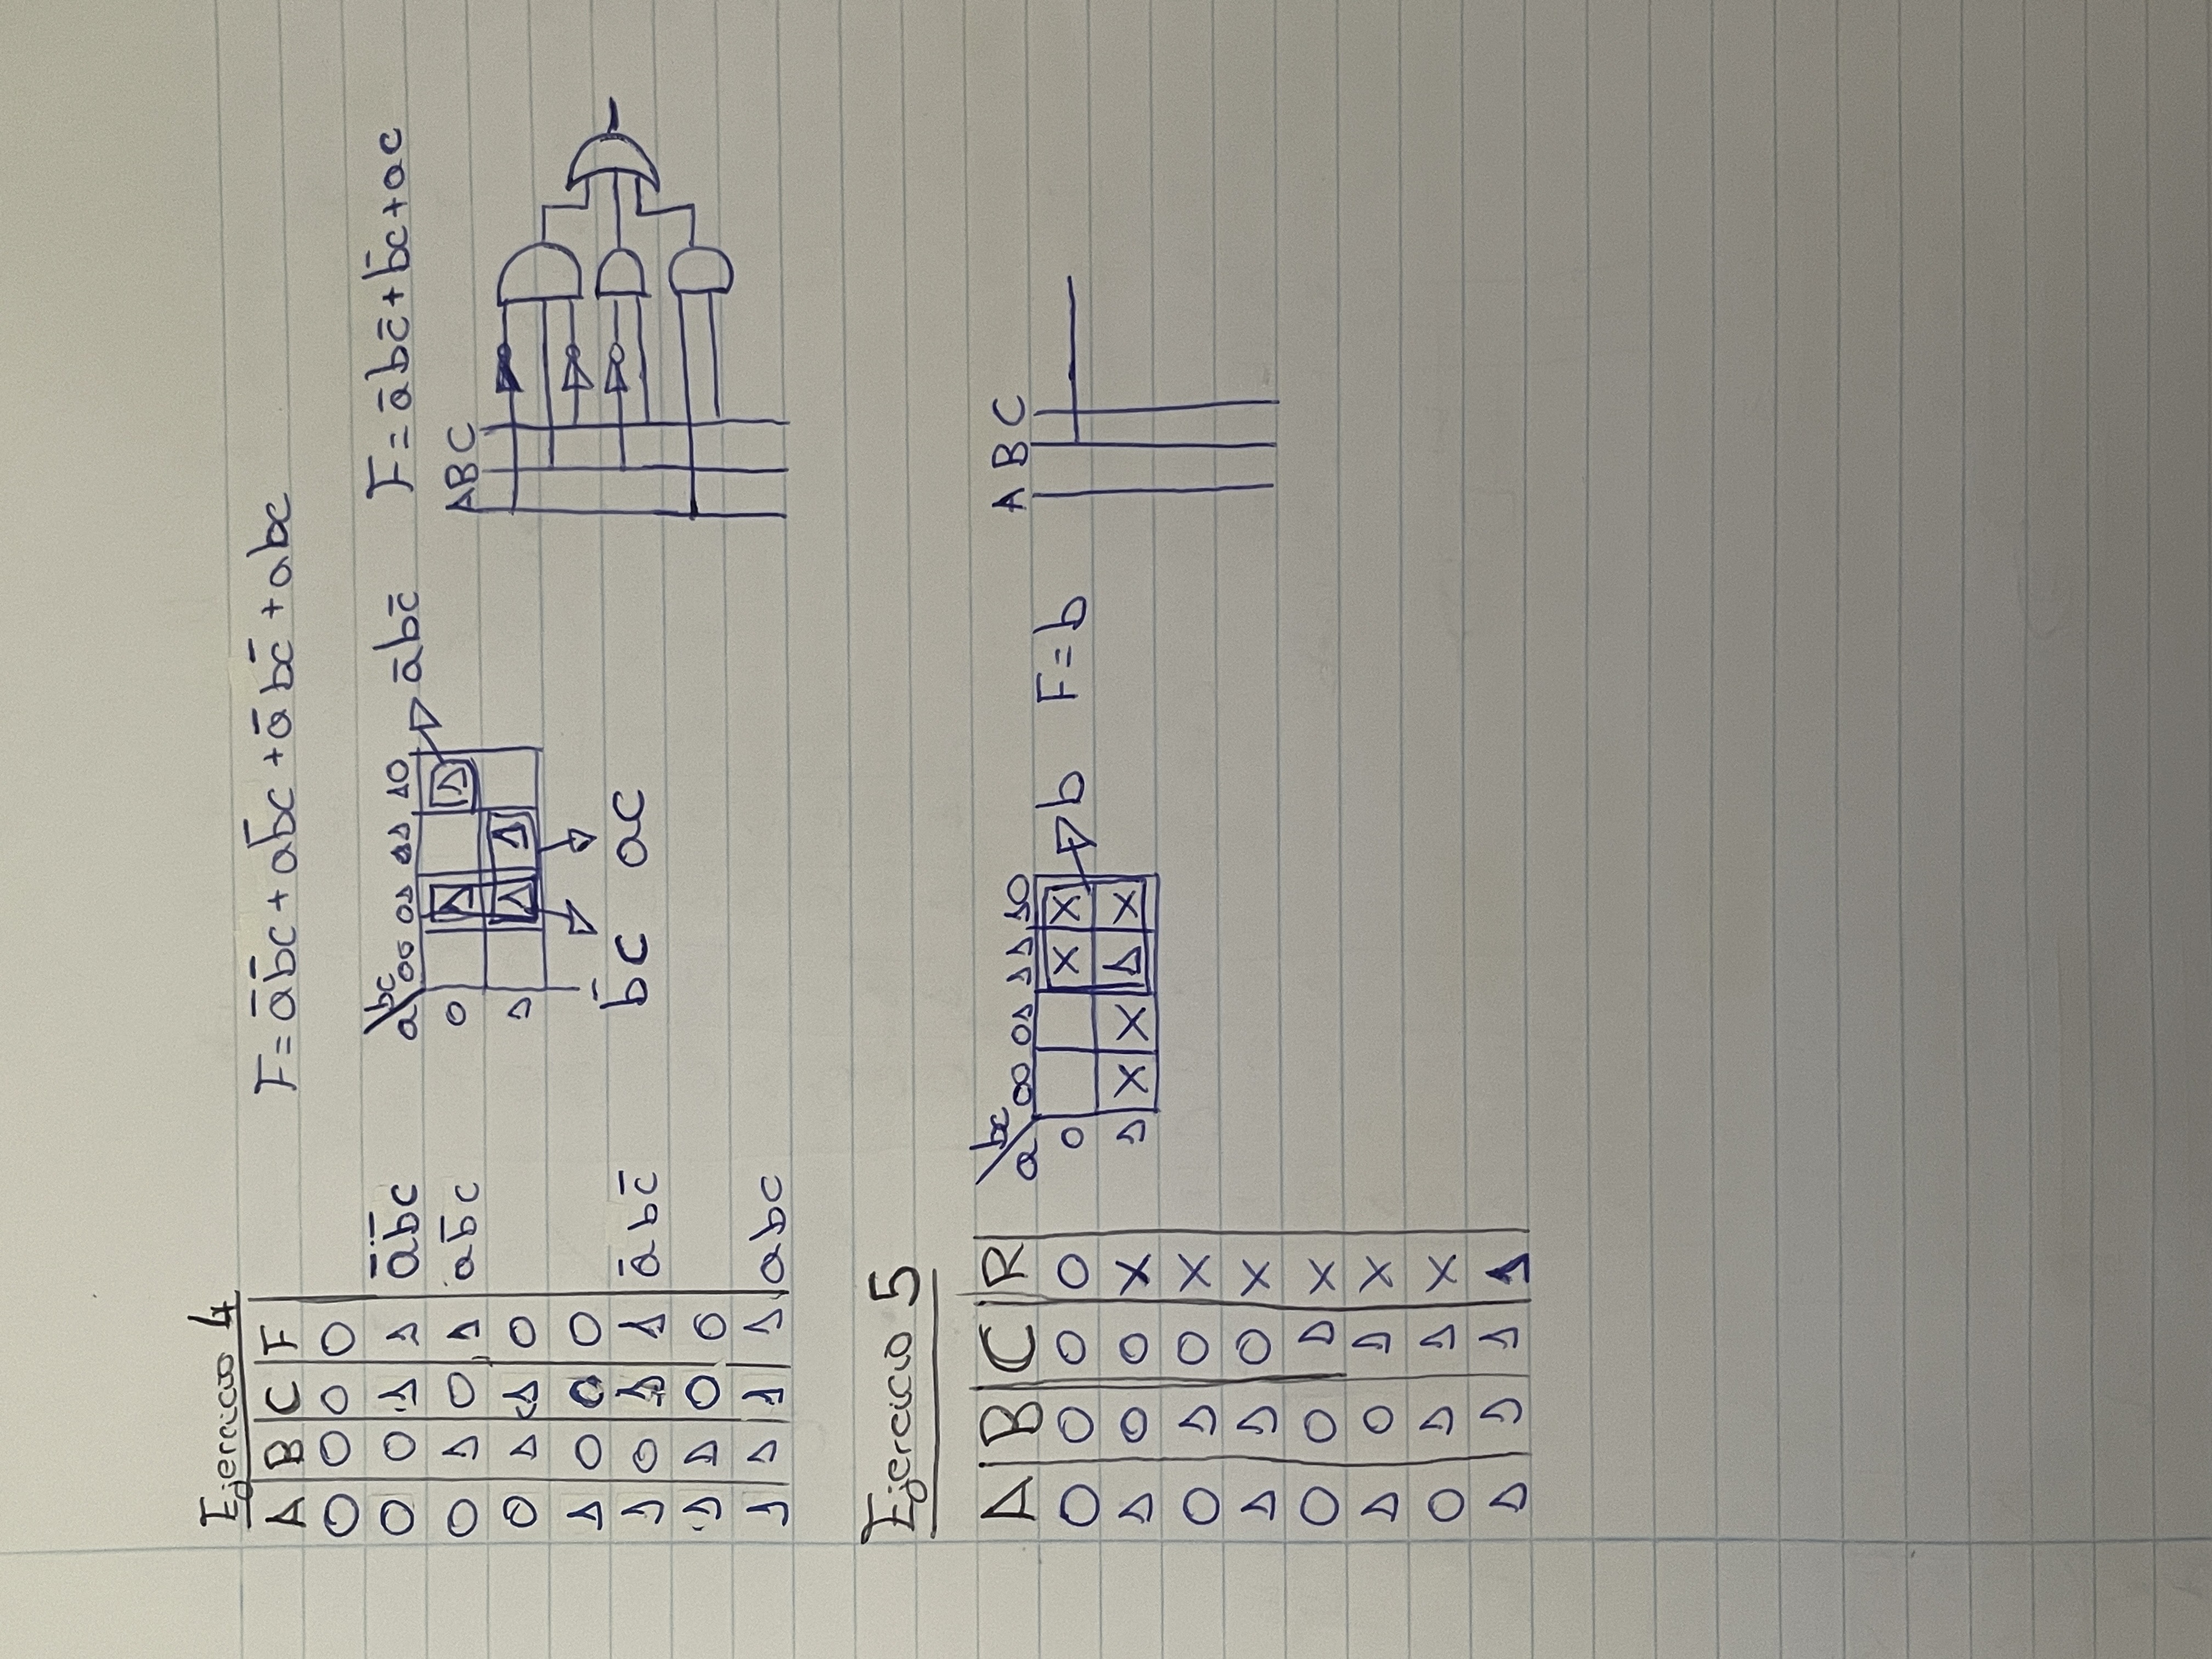 Ejercicio 4
A B C F
0 0 0 0
0 0 1 1 a̅b̅c
0 1 0 1 ab̅c
0 1 1 0
1 0 0 0
1 0 1 1 a̅bc̅
1 1 0 0
1 1 1 1 abc
F = a̅b̅c + ab̅c + a̅bc̅ + abc
a\bc 00 01 11 10
0 1 1 a̅bc̅
1 1 1
b̅c ac
F = a̅bc̅ + b̅c + ac
A B C
Ejercicio 5
A B C R
0 0 0 0
1 0 0 X
0 1 0 X
1 1 0 X
0 0 1 X
1 0 1 X
0 1 1 X
1 1 1 1
a\bc 00 01 11 10
0 X X b
1 X X 1 X
F = b
A B C